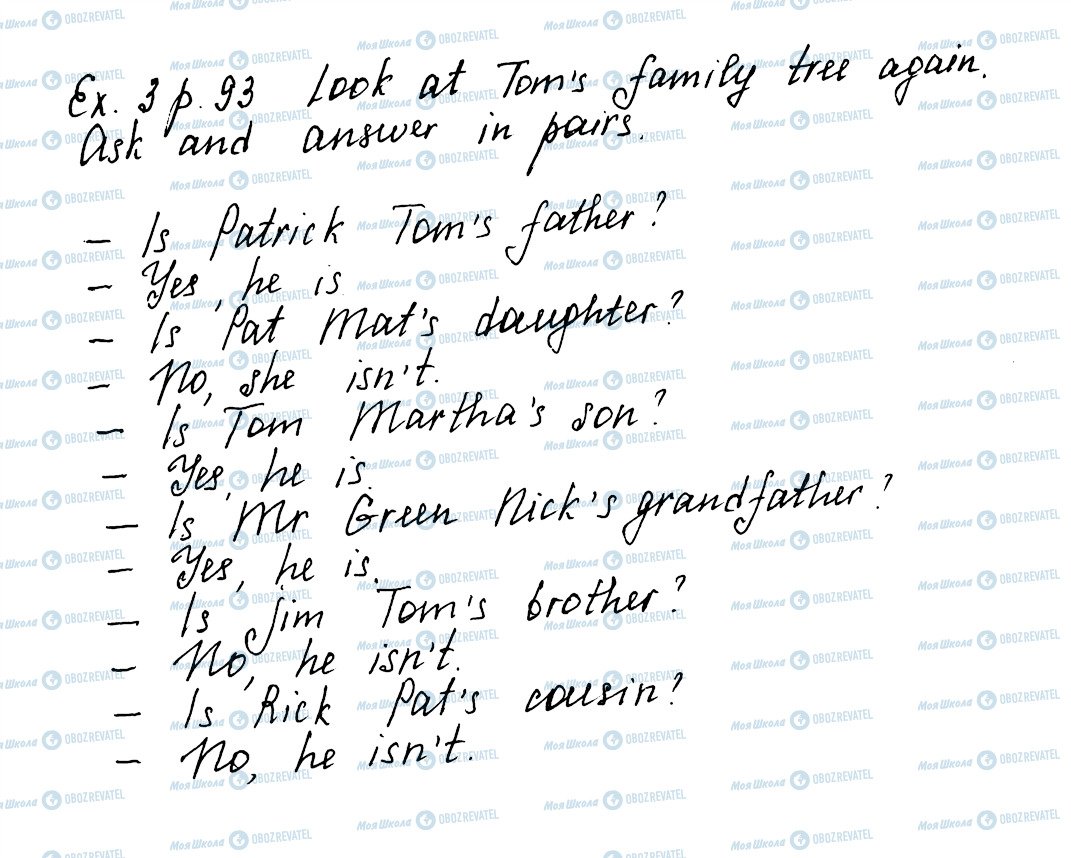 Ex. 3 p. 93 Look at Tom's family tree again.
Ask and answer in pairs.
– Is Patrick Tom's father?
– Yes, he is
– Is Pat Mat's daughter?
– No, she isn't.
– Is Tom Martha's son?
– Yes, he is.
– Is Mr Green Nick's grandfather?
– Yes, he is.
– Is Jim Tom's brother?
– No, he isn't.
– Is Rick Pat's cousin?
– No, he isn't.
Моя Школа OBOZREVATEL